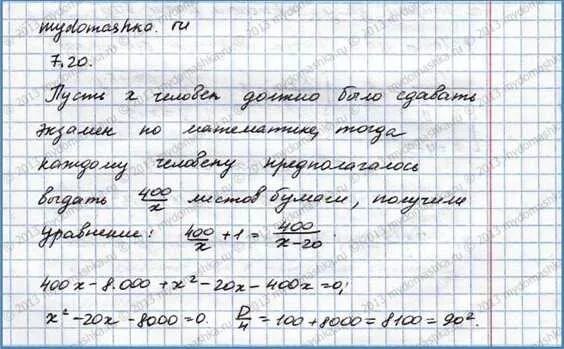 mydomashka.ru
7.20.
Пусть x человек должно было сдавать
экзамен по математике, тогда
каждому человеку предполагалось
выдать 400/x листов бумаги, получили
уравнение: 400/x + 1 = 400/(x-20).
400x - 8.000 + x² - 20x - 400x = 0;
x² - 20x - 8000 = 0. D/4 = 100 + 8000 = 8100 = 90².